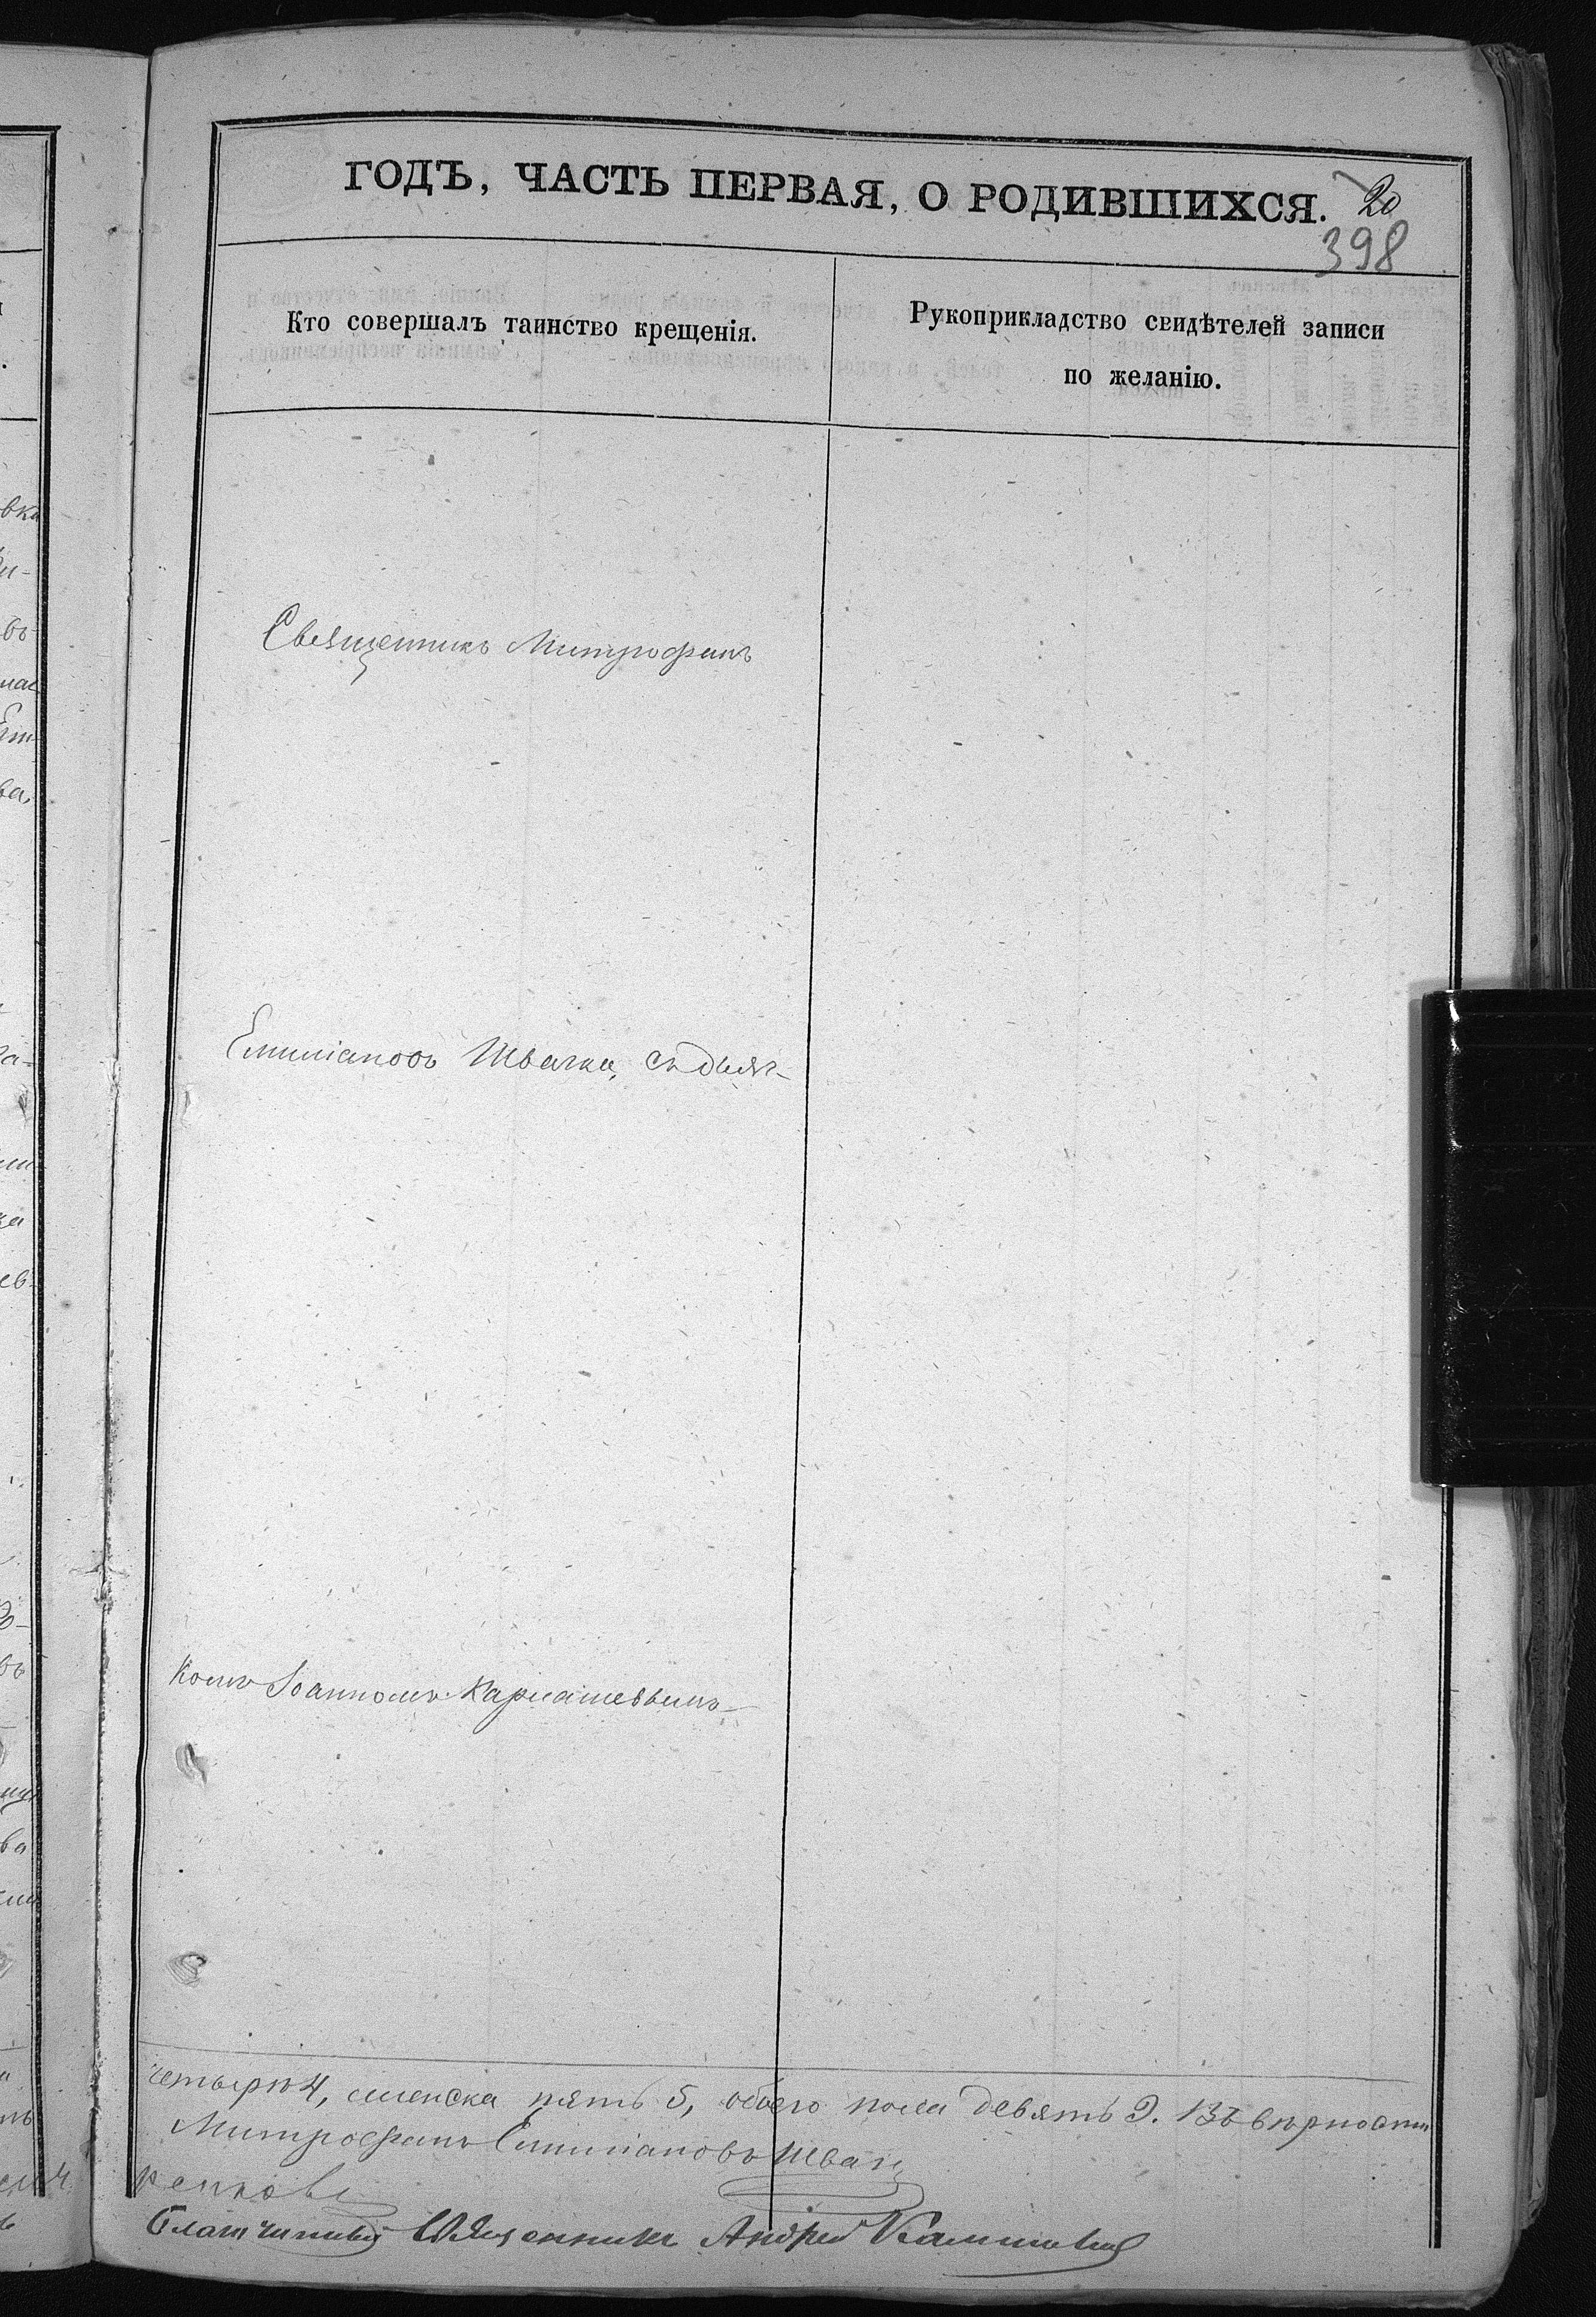 ГОДЪ, ЧАСТЬ ПЕРВАЯ, О РОДИВШИХСЯ. 20
398
Кто совершалъ таинство крещенія.
Рукоприкладство свидѣтелей записи
по желанію.
Священникъ Митрофанъ
Емиліановъ Швачка, съ дьяч-
комъ Іоанномъ Кармашевымъ
четыре 4, женска пять 5, обоего пола девять 9. Въ вѣрности
Митрофанъ Емиліановъ Швач
Благочинный Священникъ Андрей